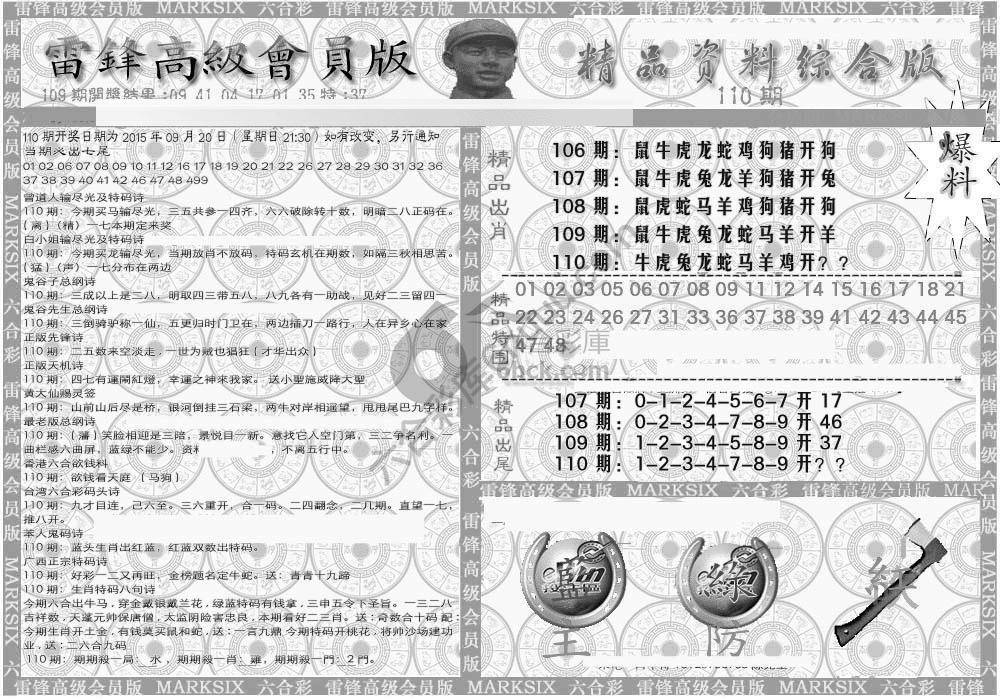 雷锋高级会员版 MARKSIX 六合彩 雷锋高级会员版 MARKSIX 六合彩 雷锋高级会员版 MARKSIX 六合彩 雷锋
雷鋒高級會員版
109期開獎結果:09 41 04 17 01 35 特:37
精品资料综合版
110期
110期开奖日期为 2015 年 09 月 20 日（星期日 21:30）如有改变，另行通知
01 02 06 07 08 09 10 11 12 16 17 18 19 20 21 22 26 27 28 29 30 31 32 36
37 38 39 40 41 42 46 47 48 499
曾道人输尽光及特码诗
110期：今期买马输尽光，三五共参一四齐，六六破除转十数，明暗二八正码在。
{离}（精）一七本期定来奖
白小姐输尽光及特码诗
110期：今期买龙输尽光，当期放肖不放码，特码玄机在期数，如隔三秋相思苦。
{猛}（声）一七分布在两边
鬼谷子总纲诗
110期：三成以上是二八，明取四三带五八，八九各有一助战，见好二三留四一
鬼谷先生总纲诗
110期：三倒骑驴称一仙，五更归时门卫在，两边插刀一路行，人在异乡心在家
正版先锋诗
110期：二五数来空淡走，一世为贼也猖狂{才华出众}
正版天机诗
110期：四七有運鬧紅燈，幸運之神來我家。送小聖施威降大聖
黄大仙赐灵签
110期：山前山后尽是桥，银河倒挂三石梁，两牛对岸相遥望，甩甩尾巴九字样。
最老版总纲诗
110期：{藩}笑脸相迎是三陪，景悦目一新。意找它人空门第，三二争名利。一
曲栏感六曲屏，蓝绿不能少。资料，不离五行中。
香港六合欲钱料
110期：欲钱看天庭 {马狗}
台湾六合彩码头诗
110期：九才目连，己六至。三六重开，合一码。二四翻念，二儿期。直望一七，
推八开。
苯人鬼码诗
110期：蓝头生肖出红蓝，红蓝双数出特码。
广西正宗特码诗
110期：好彩一二又再旺，金榜题名定牛蛇。送：青青十九蹄
110期：生肖特码八句诗
今期六合出牛马，穿金戴银戴兰花，绿蓝特码有钱拿，三申五令下圣旨。一三二八
吉祥数，天蓬元帅保唐僧，太监阴险害忠良，本期看好二三肖。送：奇数合十码 配：
今期生肖开土金，有钱莫买鼠和蛇，送：一言九鼎 今期特码开桃花，将帅沙场建功
业，送：二六合九码
110期：期期殺一局：水，期期殺一肖：雞，期期殺一門：2門。
精品出肖
106 期：鼠牛虎龙蛇鸡狗猪开狗
107 期：鼠牛虎兔龙羊狗猪开兔
108 期：鼠虎蛇马羊鸡狗猪开猪
109 期：鼠牛虎兔龙蛇马羊开羊
110 期：牛虎兔龙蛇马羊鸡开？？
爆料
精品特围
01 02 03 05 06 07 08 09 11 12 14 15 16 17 18 21
22 23 24 26 27 31 33 36 37 38 39 41 42 43 44 45
47 48
精品出尾
107 期：0-1-2-4-5-6-7 开 17
108 期：0-2-3-4-7-8-9 开 46
109 期：1-2-3-4-5-8-9 开 37
110 期：1-2-3-4-7-8-9 开？？
雷锋高级会员版 MARKSIX 六合彩 雷锋高级会员版 MAR
綠
紅
主
防
雷锋高级会员版 MARKSIX 六合彩 雷锋高级会员版 MARKSIX 六合彩 雷锋高级会员版 MARKSIX 六合彩 雷锋